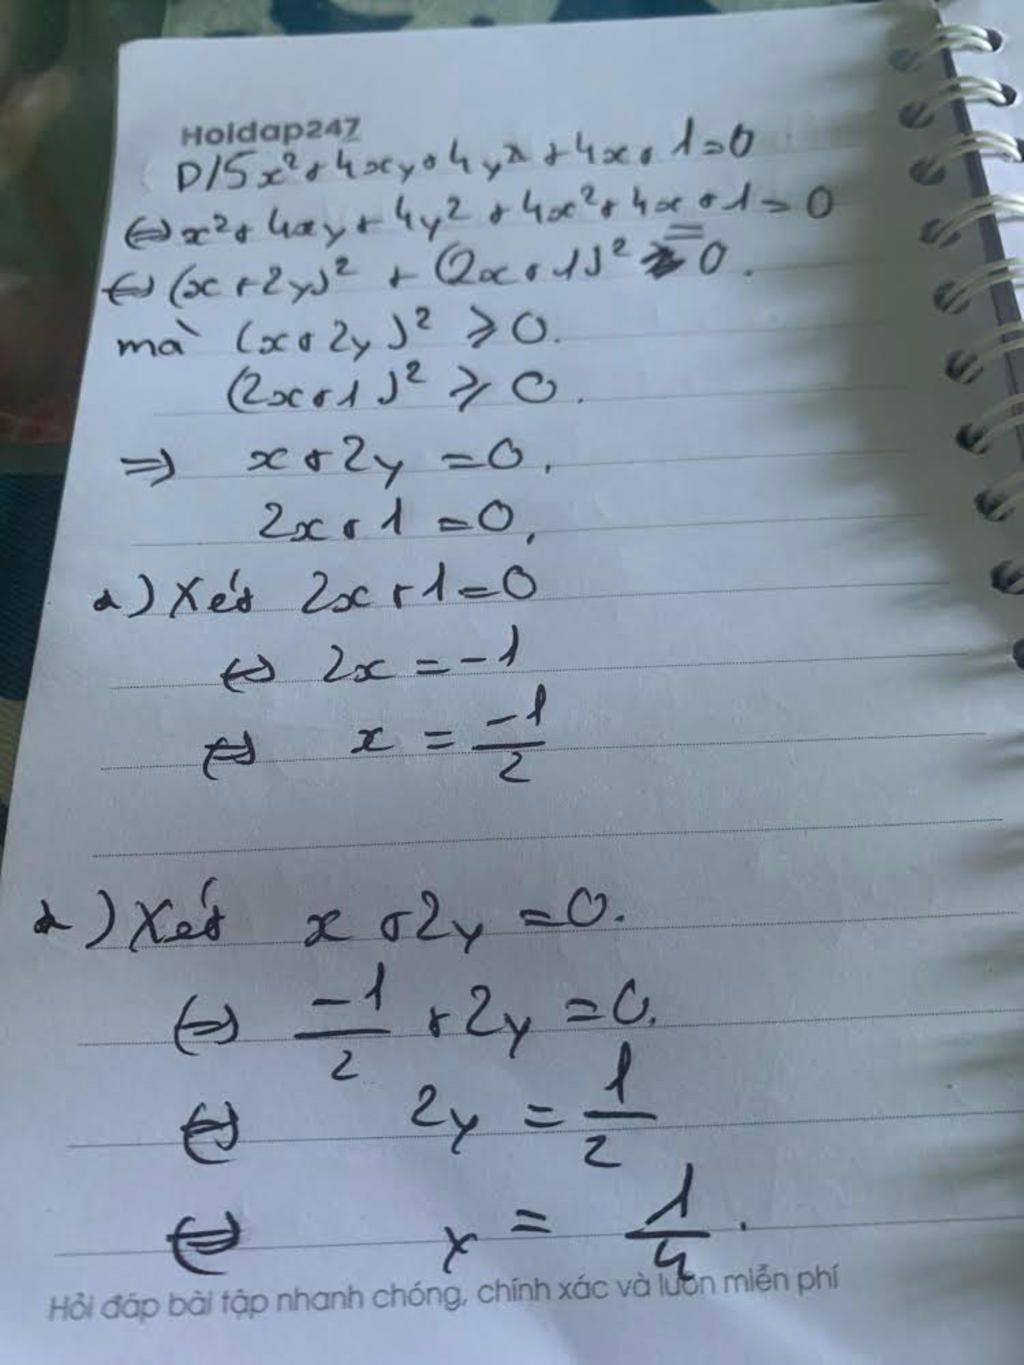 Hoidap247
D/5x²+4xy+4y²+4x+1=0
⇔x²+4xy+4y²+4x²+4x+1=0
⇔(x+2y)²+(2x+1)²=0.
mà (x+2y)²⩾0.
(2x+1)²⩾0.
⇒ x+2y=0.
2x+1=0,
+) Xét 2x+1=0
⇔ 2x=-1
⇔ x=-1/2
+) Xét x+2y=0.
⇔ -1/2+2y=0.
⇔ 2y=1/2
⇔ y=1/4.
Hỏi đáp bài tập nhanh chóng, chính xác và luôn miễn phí